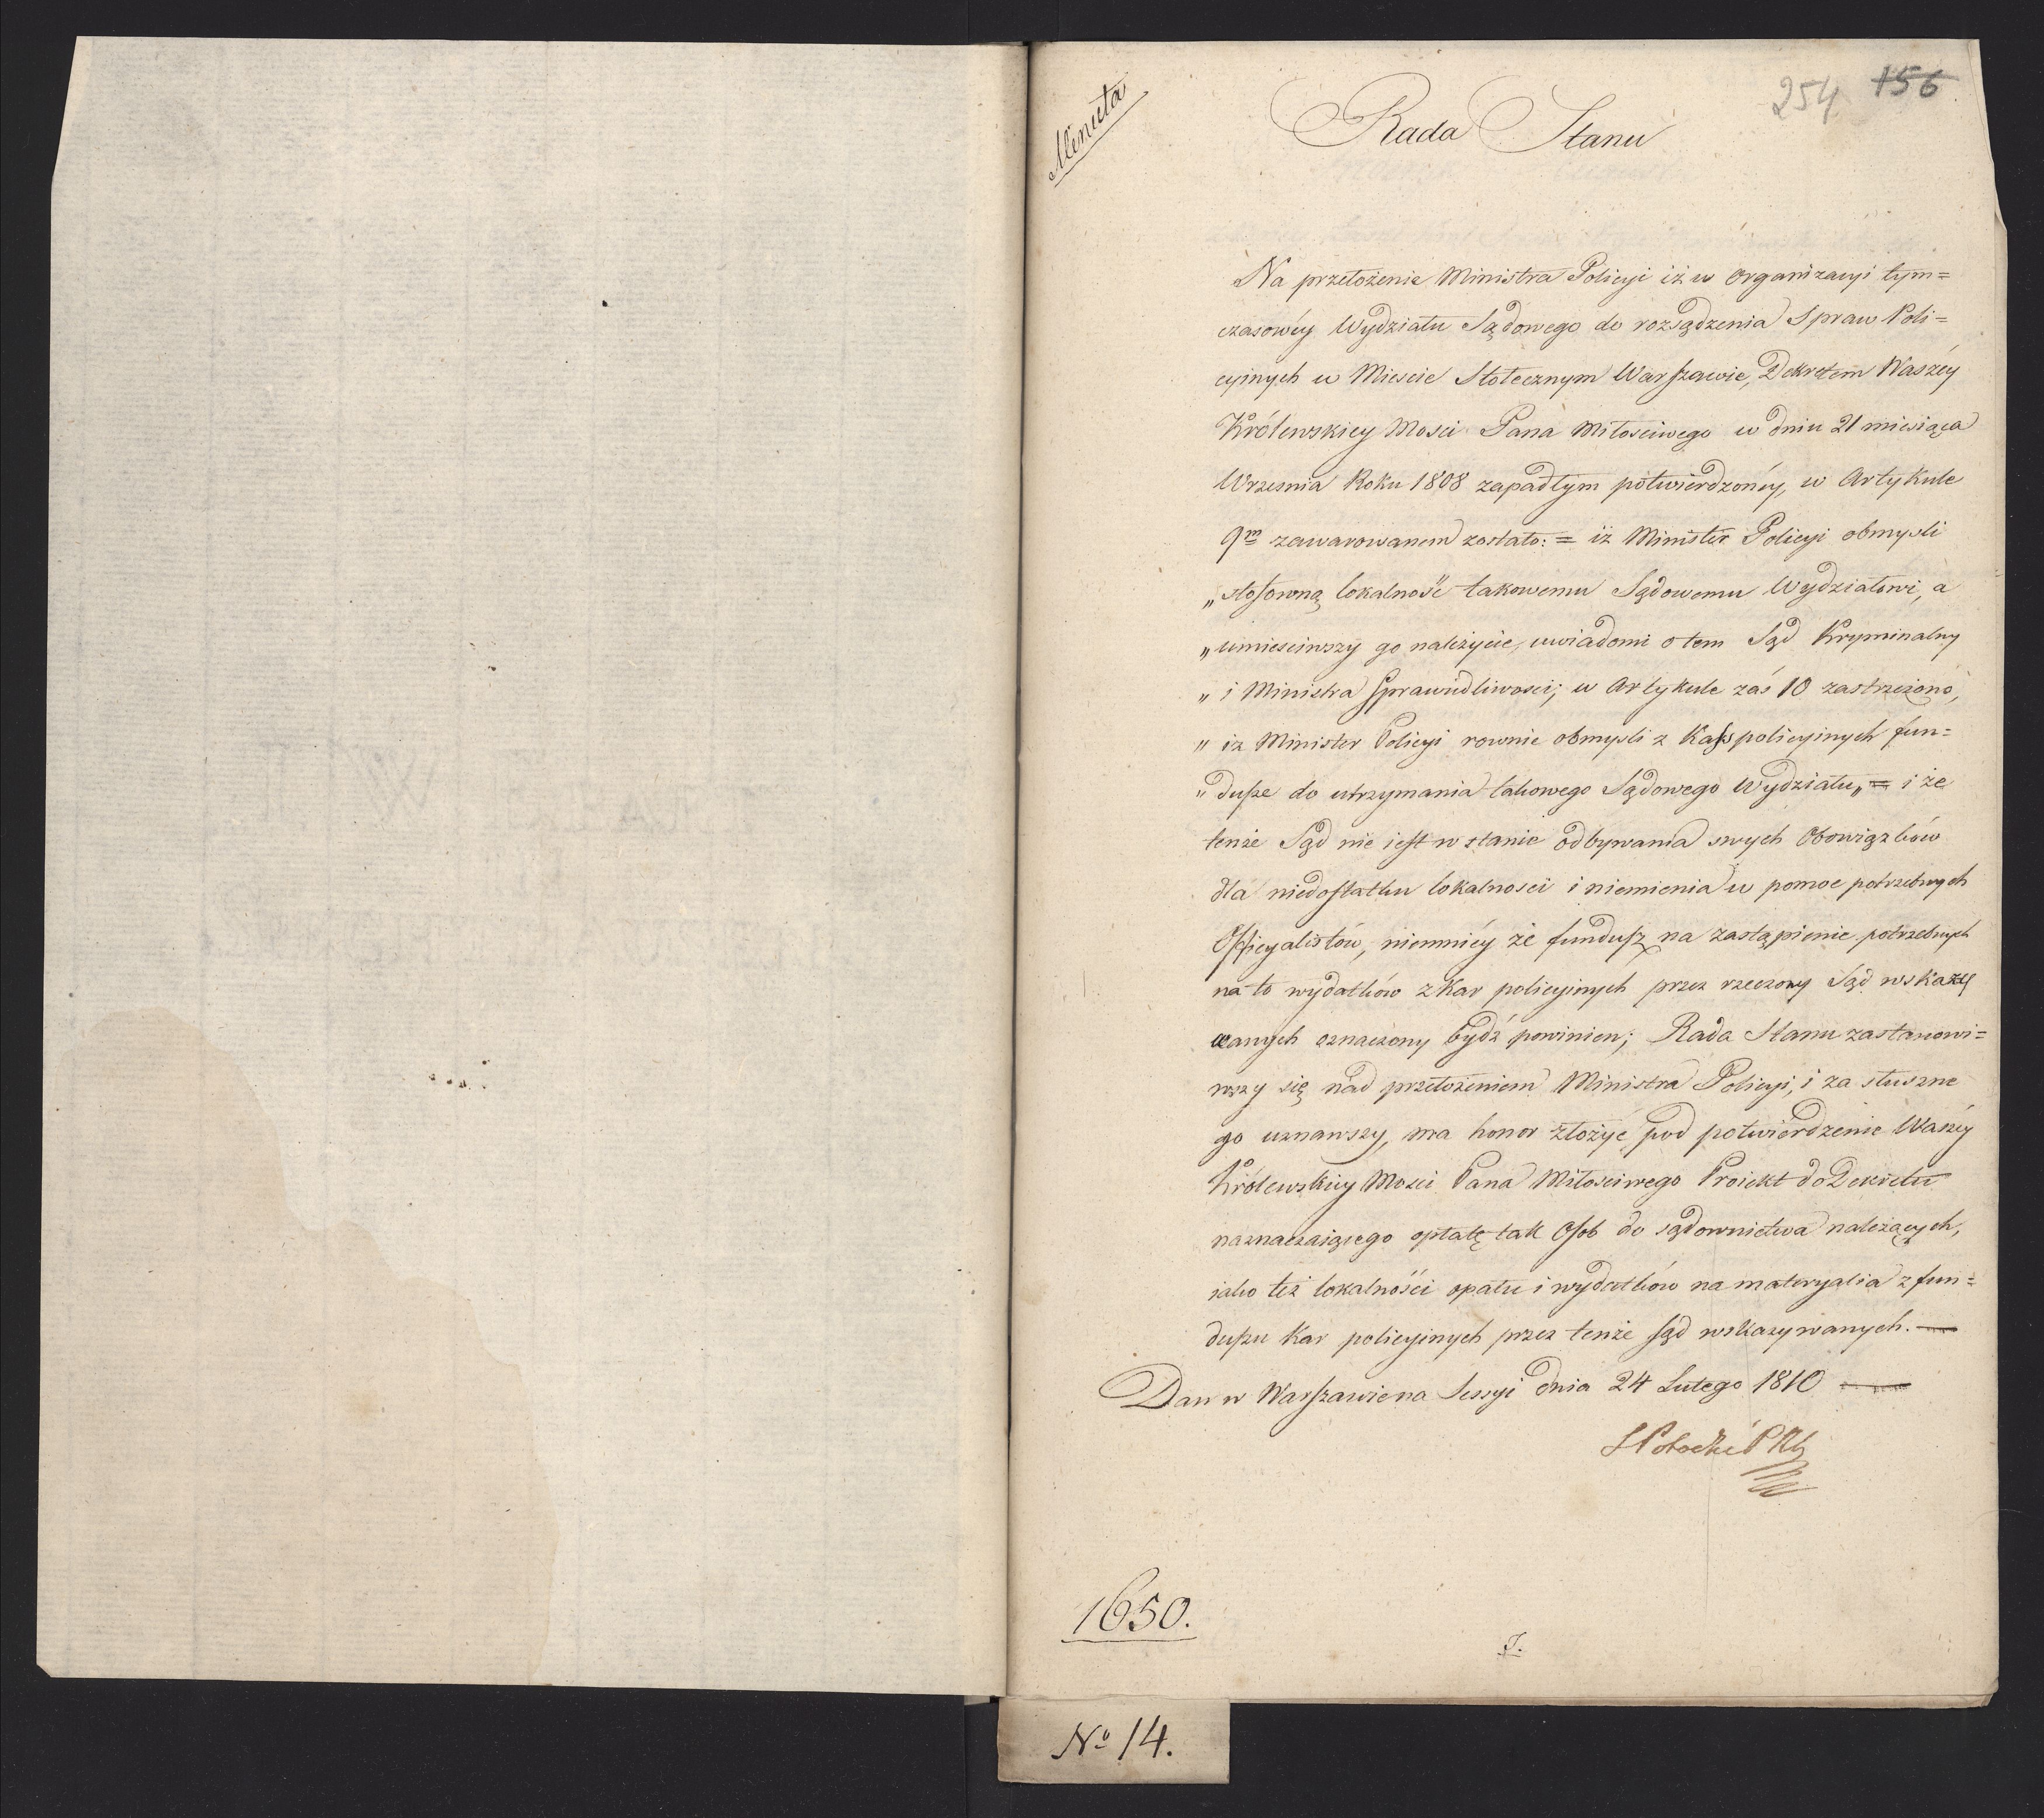 Menuta
254 156
Rada Stanu
Na przełożenie Ministra Policyi iż w Organizacyi tym=
czasowéy Wydziału Sądowego do rozsądzenia Spraw Poli=
cyinych w Miescie Stołecznym Warszawie, Dekretem Waszéy
Królewskiey Mosci Pana Miłosciwego w dniu 21 miesiąca
Wrzesnia Roku 1808 zapadłym potwierdzonéy, w Artykule
9m zawarowanem zostało: = iż Minister Policyi obmysli
„stosowną lokalność takowemu Sądowemu Wydziałowi, a
„umiesciwszy go należycie, uwiadomi o tem Sąd Kryminalny
„i Ministra Sprawiedliwosci; w Artykule zaś 10 zastrzeżono,
„iż Minister Policyi rownie obmysli z Kass policyinych fun=
„dusze do utrzymania takowego Sądowego Wydziału„ = i że
tenże Sąd nie iest w stanie odbywania swych Obowiązków
dla niedostatku lokalnosci i niemienia w pomoc potrzebnych
Officyalistów, niemniéy że fundusz na zastąpienie potrzebnych
na to wydatków z Kar policyinych przez rzeczony Sąd wskazy
wanych oznaczony bydź powinien; Rada Stanu zastanowi=
wszy się nad przełożeniem Ministra Policyi, i za słuszne
go uznawszy, ma honor złożyć pod potwierdzenie Waszéy
Królewskiey Mosci Pana Miłosciwego Proiekt do Dekretu
naznaczaiącego opłatę tak Osob do sądownictwa należących,
iako też lokalności opału i wydatków na materyalia z fun=
duszu Kar policyinych przez tenże Sąd wskazywanych.
Dan w Warszawie na Sessyi dnia 24 Lutego 1810
S Potocki P Rb
1650.
J.
No 14.